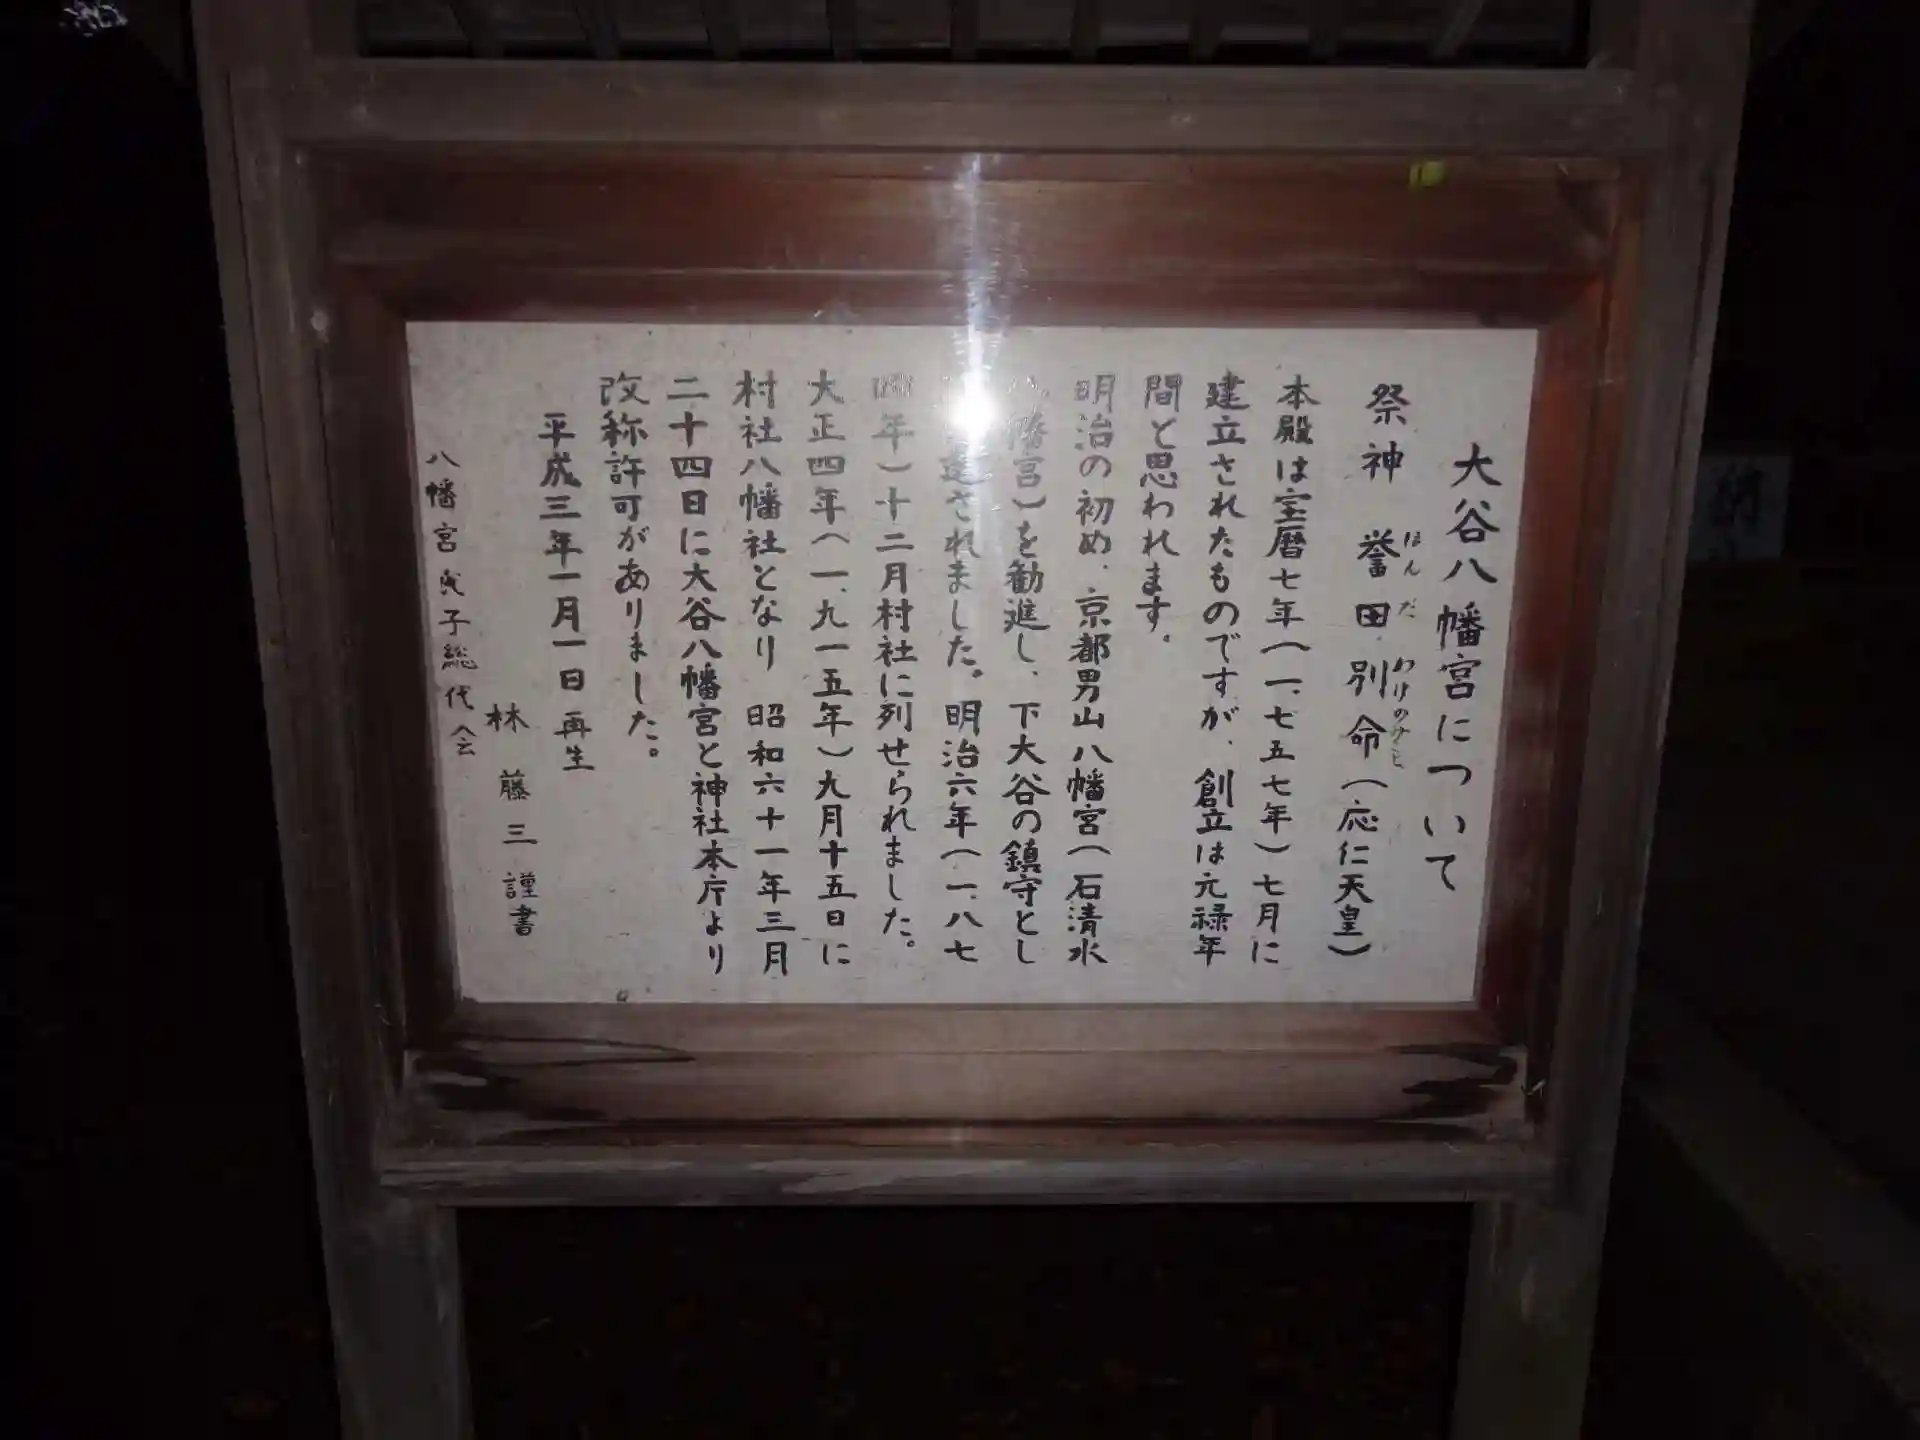 大谷八幡宮について
祭神 誉田別命(応仁天皇)
ほんだ わけのみこと
本殿は宝暦七年(一、七五七年)七月に
建立されたものですが、創立は元禄年
間と思われます。
明治の初め、京都男山八幡宮(石清水
八幡宮)を勧進し、下大谷の鎮守とし
建されました。明治六年(一、八七
四年)十二月村社に列せられました。
大正四年(一、九一五年)九月十五日に
村社八幡社となり 昭和六十一年三月
二十四日に大谷八幡宮と神社本庁より
改称許可がありました。
平成三年一月一日再生
林 藤三 謹書
八幡宮氏子総代会